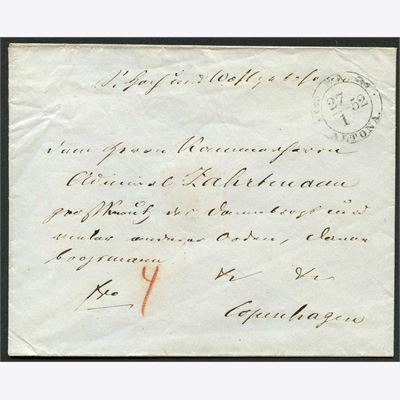 S. Hoch und Wohlgeboren
27/1 52
ALTONA.
dem Herrn Kammerherrn
Admiral Zahrtmann
Großkreutz des Dannebrogs und
vieler anderer Orden, Danne
brogsmann
&c &c
fro 4
Copenhagen